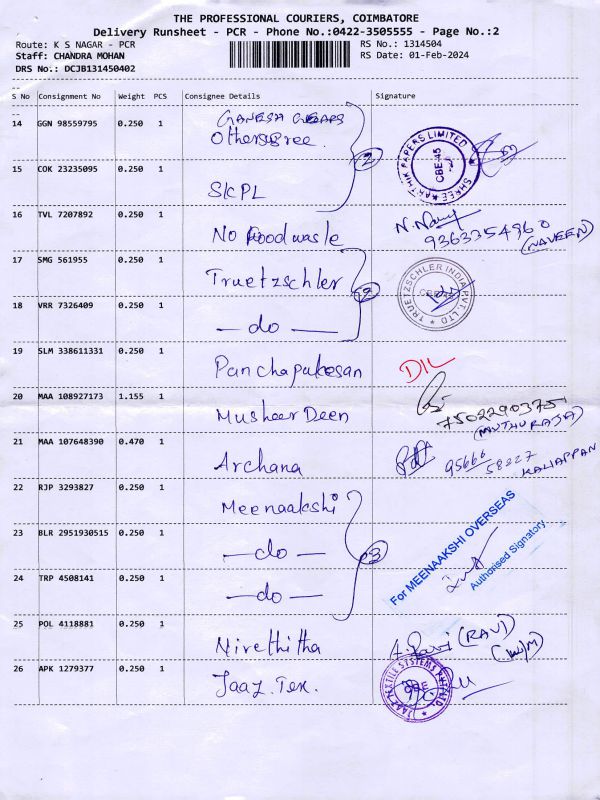 THE PROFESSIONAL COURIERS, COIMBATORE
Delivery Runsheet - PCR - Phone No.:0422-3505555 - Page No.:2
Route: K S NAGAR - PCR
RS No.: 1314504
Staff: CHANDRA MOHAN
RS Date: 01-Feb-2024
DRS No.: DCJB131450402
S No Consignment No Weight PCS Consignee Details Signature
14 GGN 98559795 0.250 1 GANESH
15 COK 23235095 0.250 1 SKPL
2
SHREE KARTHIK PAPERS LIMITED
CBE-45
16 TVL 7207892 0.250 1 No Food wasle
9363354960
(NAVEEN)
17 SMG 561955 0.250 1 Truetzschler
18 VRR 7326409 0.250 1 — do —
2
TRUETZSCHLER INDIA PVT. LTD
CBE-45
19 SLM 338611331 0.250 1 Panchapakesan DIL
20 MAA 108927173 1.155 1 Musheer Deen
7502290375
(MUTHURAJA)
21 MAA 107648390 0.470 1 Archana 95666 58227
KALIAPPAN
22 RJP 3293827 0.250 1 Meenaakshi
23 BLR 2951930515 0.250 1 — do —
24 TRP 4508141 0.250 1 — do —
3
For MEENAAKSHI OVERSEAS
Authorised Signatory
25 POL 4118881 0.250 1 Nirethitha (RAVI)
26 APK 1279377 0.250 1 Jaaz. Tex.
JAAZ TEXTILE SYSTEMS PVT LTD.
CBE